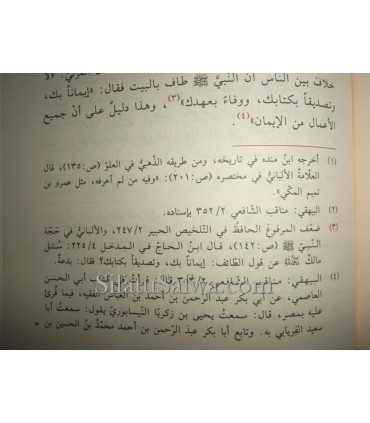 خلاف بين الناس أن النبيَّ ﷺ طاف بالبيت فقال: «إيماناً بك،
وتصديقاً بكتابك، ووفاءً بعهدك»(٣)، وهذا دليلٌ على أنّ جميع
الأعمال من الإيمان»(٤).
(١) أخرجه ابنُ منده في تاريخه، ومن طريقه الذهبيُّ في العلوّ (ص:١٣٥)، قال
العلامةُ الألبانيُّ في مختصره (ص:٢٠١): «وفيه من لم أعرفه، مثل عمرو بن
تميم المكّي».
(٢) البيهقي: مناقب الشافعي ٣٥٢/٢ بإسناده.
(٣) ضعّف المرفوعَ الحافظُ في التلخيص الحبير ٢٤٧/٢، والألبانيُّ في حجّة
النبيِّ ﷺ (ص:١٤٢)، قال ابنُ الحاجّ في المدخل ٢٢٥/٤: سُئل
مالكٌ عن قول الطّائف: إيماناً بك، وتصديقاً بكتابك؟ فقال: بدعةٌ.
(٤) البيهقي: مناقب الشافعي أبي الحسن
العاصمي، عن أبي بكر عبد الرّحمن بن أحمد بن العبّاس الفقيه، فيما قُرئ
عليه بمصر، قال: سمعتُ يحيى بن زكريّا النّيسابوريَّ يقول: سمعتُ أبا
سعيد الفِريابي به. وتابع أبا بكر عبدَ الرّحمن بن أحمد محمّدُ بنُ الحسين بن
SifatuSafwa.com